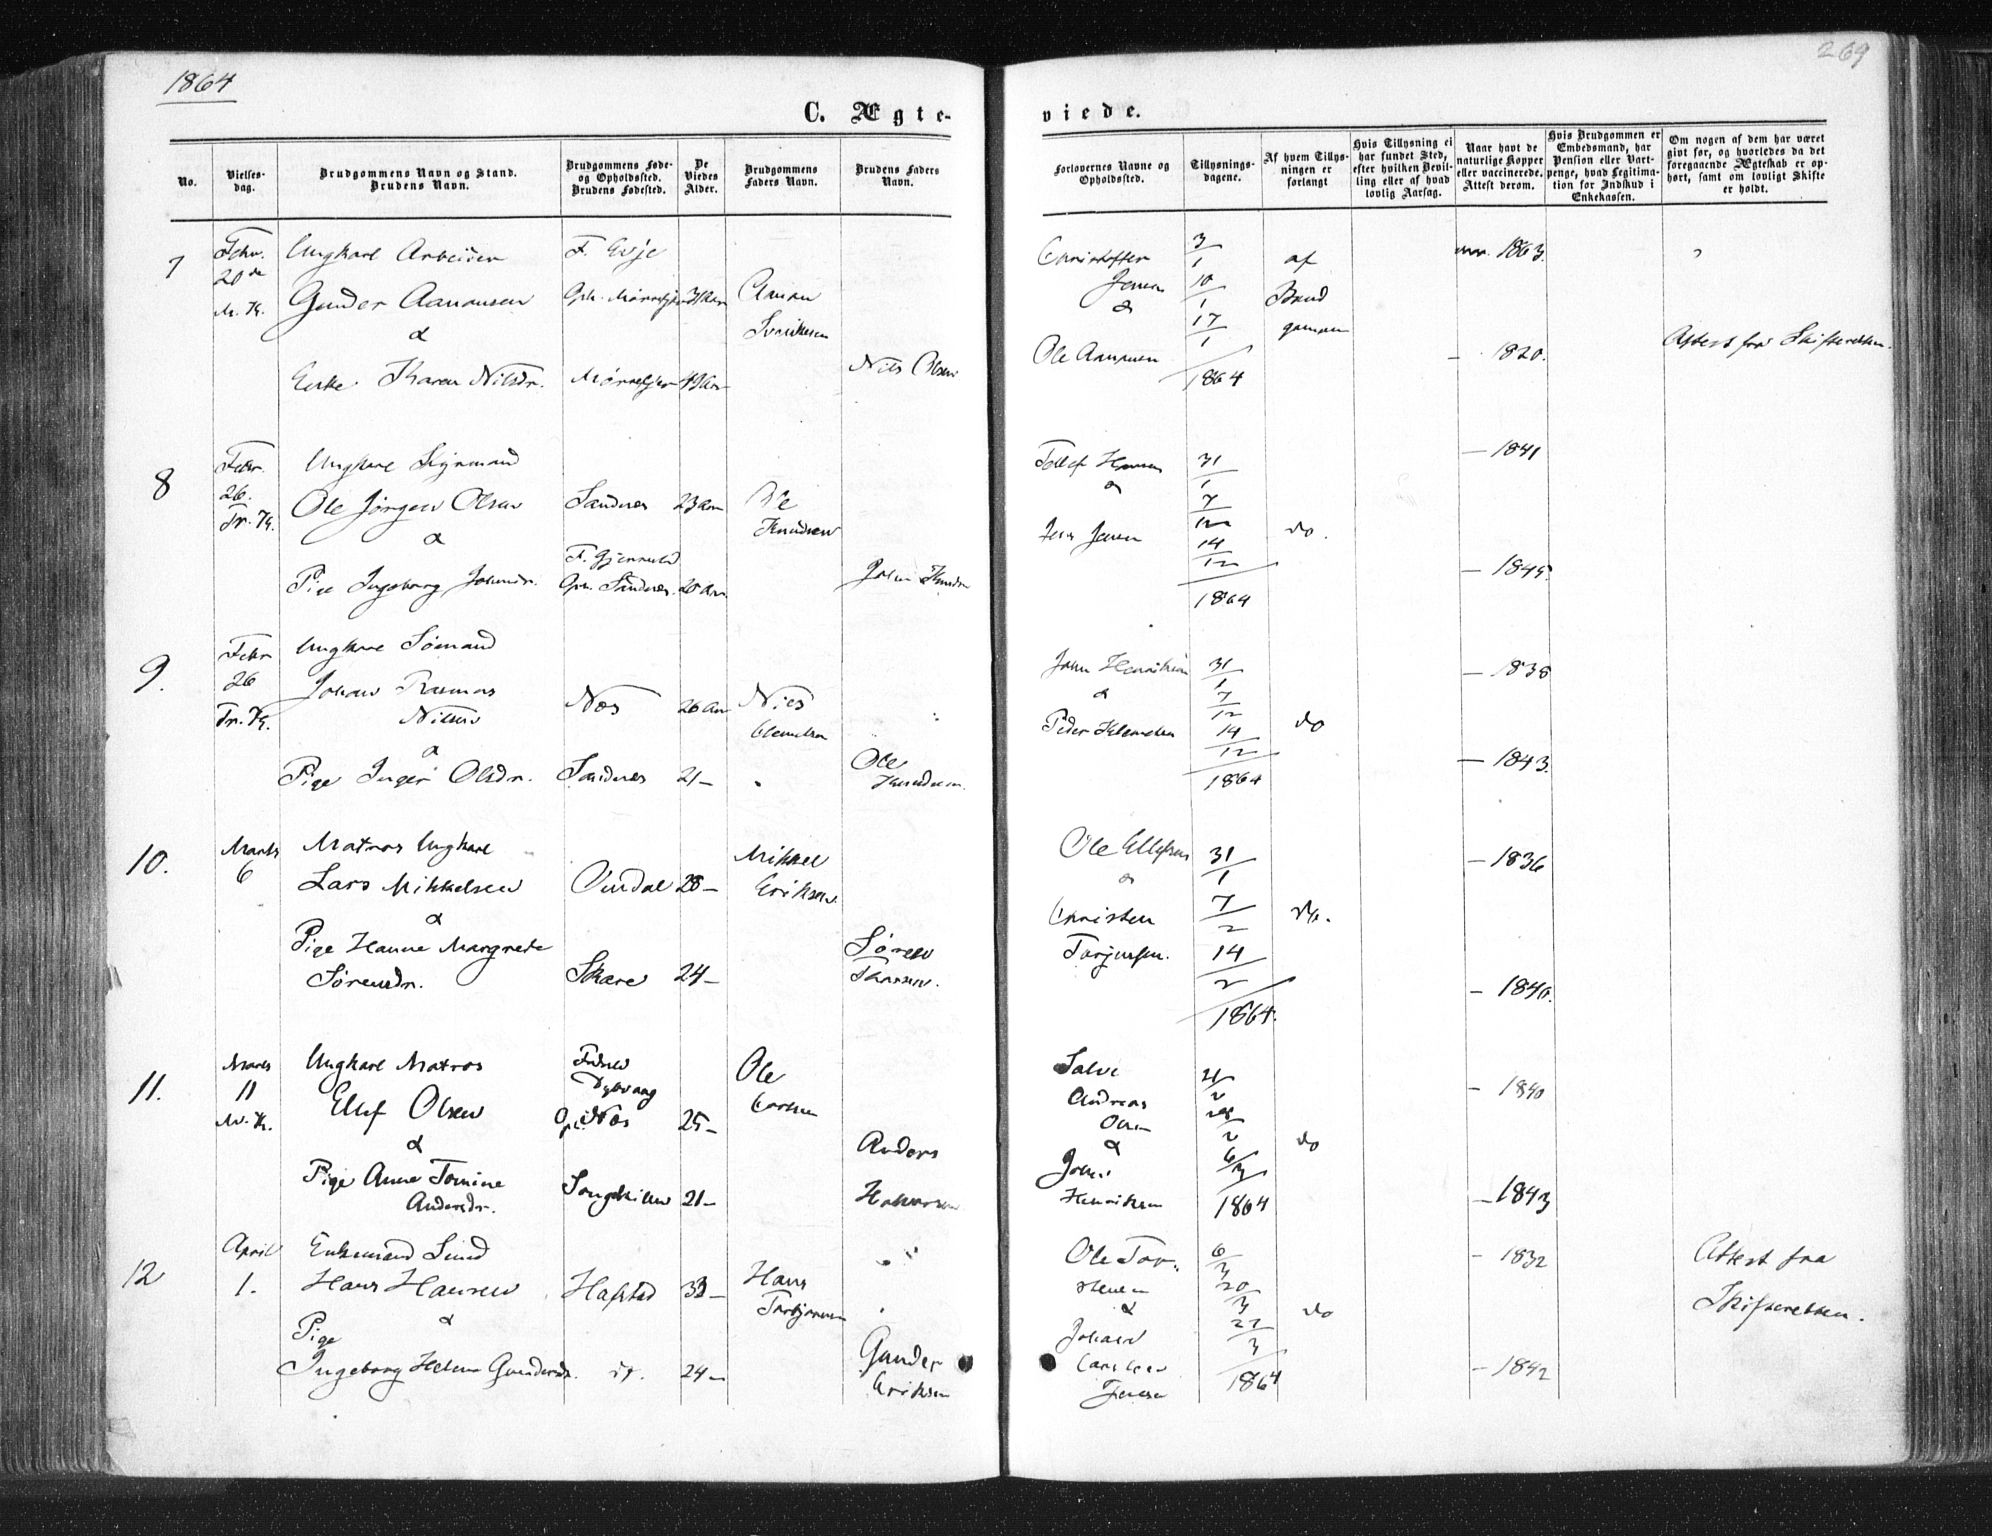 1864
269
C. Ægte-
viede.
No.
Vielses-
dag.
Brudgommens Navn og Stand.
Brudens Navn.
Brudgommens Føde-
og Opholdssted.
Brudens Fødested.
De
Viedes
Alder.
Brudgommens
Faders Navn.
Brudens Faders
Navn.
Forlovernes Navne og
Opholdssted.
Tillysnings-
dagene.
Af hvem Tillys-
ningen er
forlangt
Hvis Tillysning ei
har fundet Sted,
efter hvilken Bevil-
ling eller af hvad
lovlig Aarsag.
Naar havt de
naturlige Kopper
eller vaccinerede.
Attest derom.
Hvis Brudgommen er
Embedsmand, har
Pension eller Vart-
penge, hvad Legitima-
tion for Indskud i
Enkekassen.
Om nogen af dem har været
givt før, og hvorledes da det
foregaaende Ægteskab er op-
hørt, samt om lovligt Skifte
er holdt.
7
Febr.
20de
Ungkarl Arbeider
Gunder Aanonsen
&
Enke Karen Nilsdr.
F. Evje
Nils Olsen
Christoffer
Jensen
&
Ole Aanonsen
3/1
10/1
17/1
1864
af
Brud
gommen
1863.
1820.
Attest fra Skifteretten.
8
Febr.
26.
Tr. K.
Ungkarl Sømand
Ole Jørgen Olsen
&
Pige Ingeborg
Sandnes
23 Aar
Ole
Knudsen
&
Jens Jensen
31/1
7/12
14/12
1864
do.
– 1841
– 1845.
9.
Febr
26
Tr. K.
Ungkarl Sømand
Johan Rasmus
Nilsen
&
Pige Inger Olsdr.
Næs
Sandnes
26 Aar
21 –
Niels
Ole
Knudsen.
John Henriksen
&
Peder Klemetsen
31/1
7/12
14/12
1864
do
– 1838
– 1843.
10.
Marts
6
Matros Ungkarl
Lars Mikkelsen
&
Pige Hanne Margrete
Sørensdr.
Omdal
Skare
28 –
24 –
Mikkel
Eriksen.
Søren
Ole Ellefsen
&
Christen
Torjussen.
31/1
7/2
14/2
1864.
do.
– 1836
– 1840.
11.
Marts
11
Ungkarl Matros
Ellef Olsen
&
Pige Anne Tomine
Andersdr.
Dybvaag
Næs
25 –
21 –
Ole
Larsen
Anders
Halvorsen
Salve
Andreas
Olsen
&
John
Henriksen
21/2
28/2
6/3
1864
do
– 1840
– 1843
12
April
1.
Enkemand
Hans Hansen
&
Pige
Ingeborg Helene Gundersdr.
Hafstad
33 –
24 –
Hans
Torbjørnsen
Gunder
Eriksen
Ole Tor-
stensen
&
Johan
Jensen
6/3
20/3
27/3
1864
do
– 1832
– 1842
Attest fra
Skifteretten.